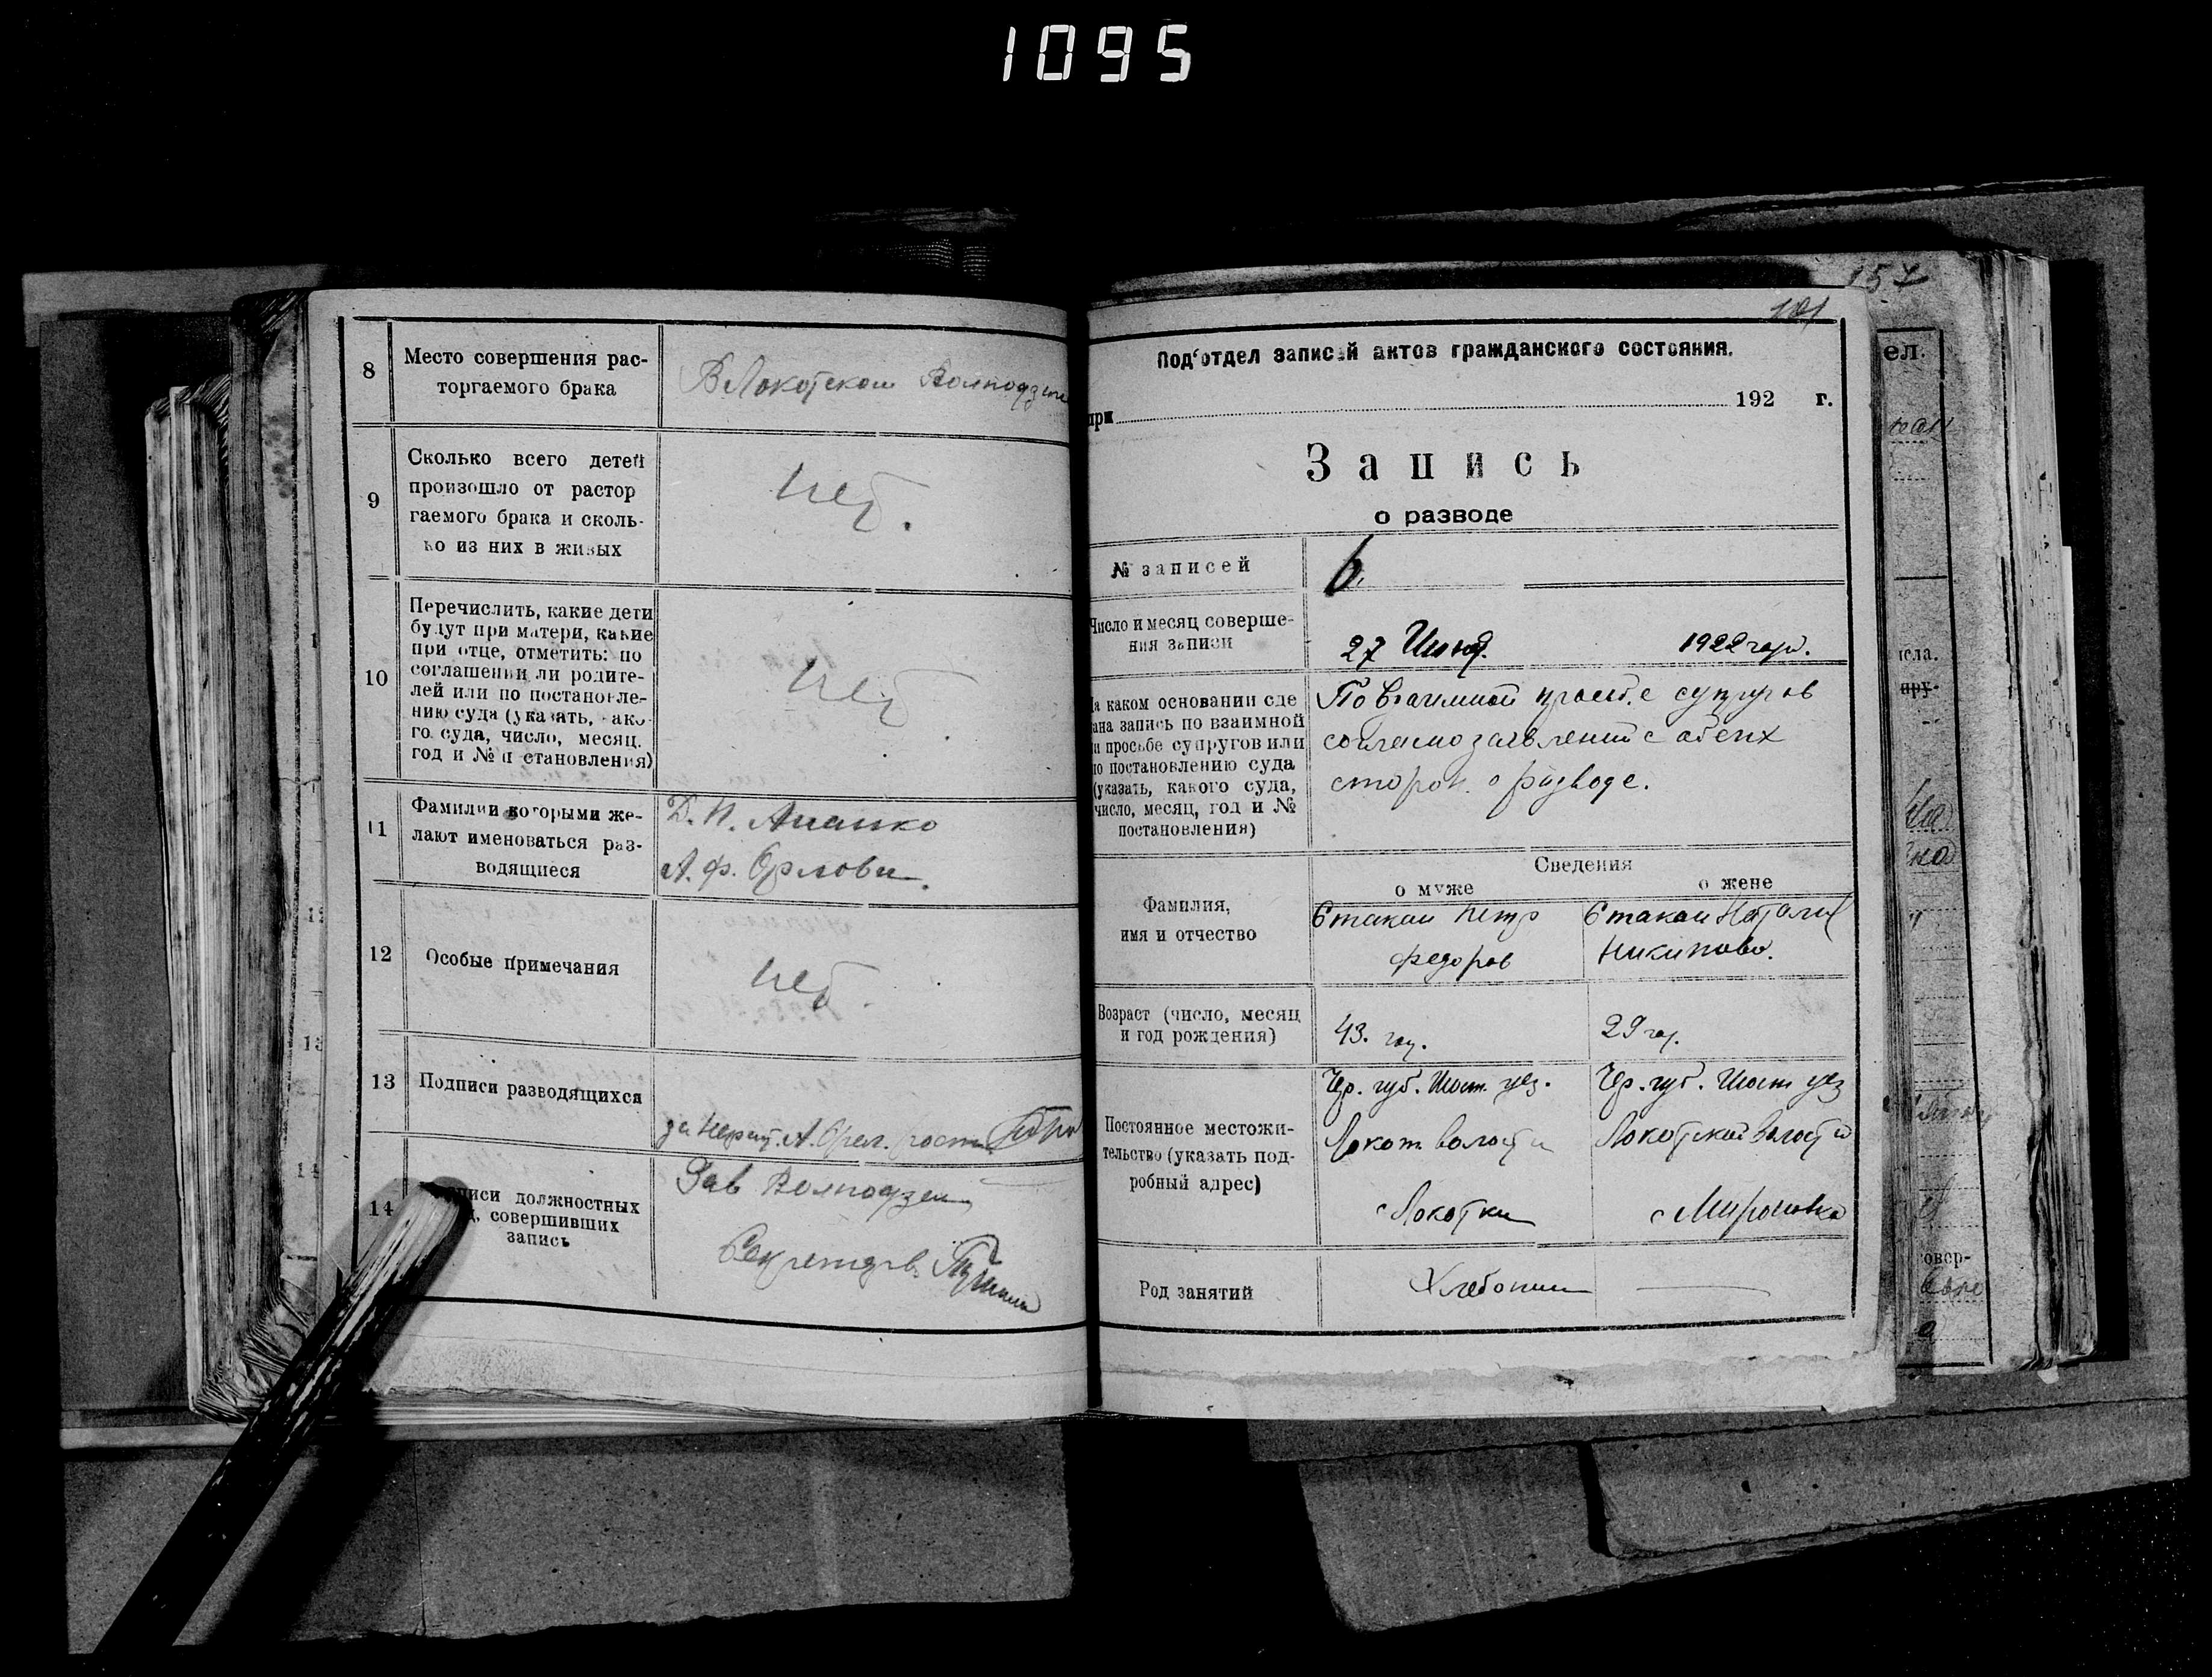 1095
8
Место совершения рас-
торгаемого брака
В Локотском Волподзаги
9
Сколько всего детей
произошло от растор
гаемого брака и сколь-
ко из них в живых
нет.
10
Перечислить, какие дети
будут при матери, какие
при отце, отметить: по
соглашении ли родите-
лей или по постановле-
нию суда (указать, како-
го суда, число, месяц,
год и № п становления)
нет
11
Фамилии которыми же-
лают именоваться раз-
водящиеся
Д. И.
А. Ф. Орлова.
12
Особые примечания
нет.
13
Подписи разводящихся
за неграм. А. Орл.
14
иси должностных
совершивших
запись
Зав
Секретарь
157
Под'отдел записей актов гражданского состояния.
при 192 г.
Запись
о разводе
№ записей
6.
Число и месяц соверше-
ния записи
27 Июня 1922 года.
а каком основании сде
ана запись по взаимной
и просьбе супругов или
по постановлению суда
(указать, какого суда,
число, месяц, год и №
постановления)
По взаимной просьбе супругов
согласно заявлений с обеих
сторон о разводе.
Сведения
о муже
о жене
Фамилия,
имя и отчество
Стакан Петр
Федоров
Стакан Наталия
Никипова.
Возраст (число, месяц
и год рождения)
43. год.
29 год.
Постоянное местожи-
тельство (указать под-
робный адрес)
Чер. губ. Шост. уез.
Локот. волости
с Локотки
Чер. губ. Шост уез
Локотской волости
с Мироновка
Род занятий
Хлебопаш
ел.
исла.
пру-
овер-